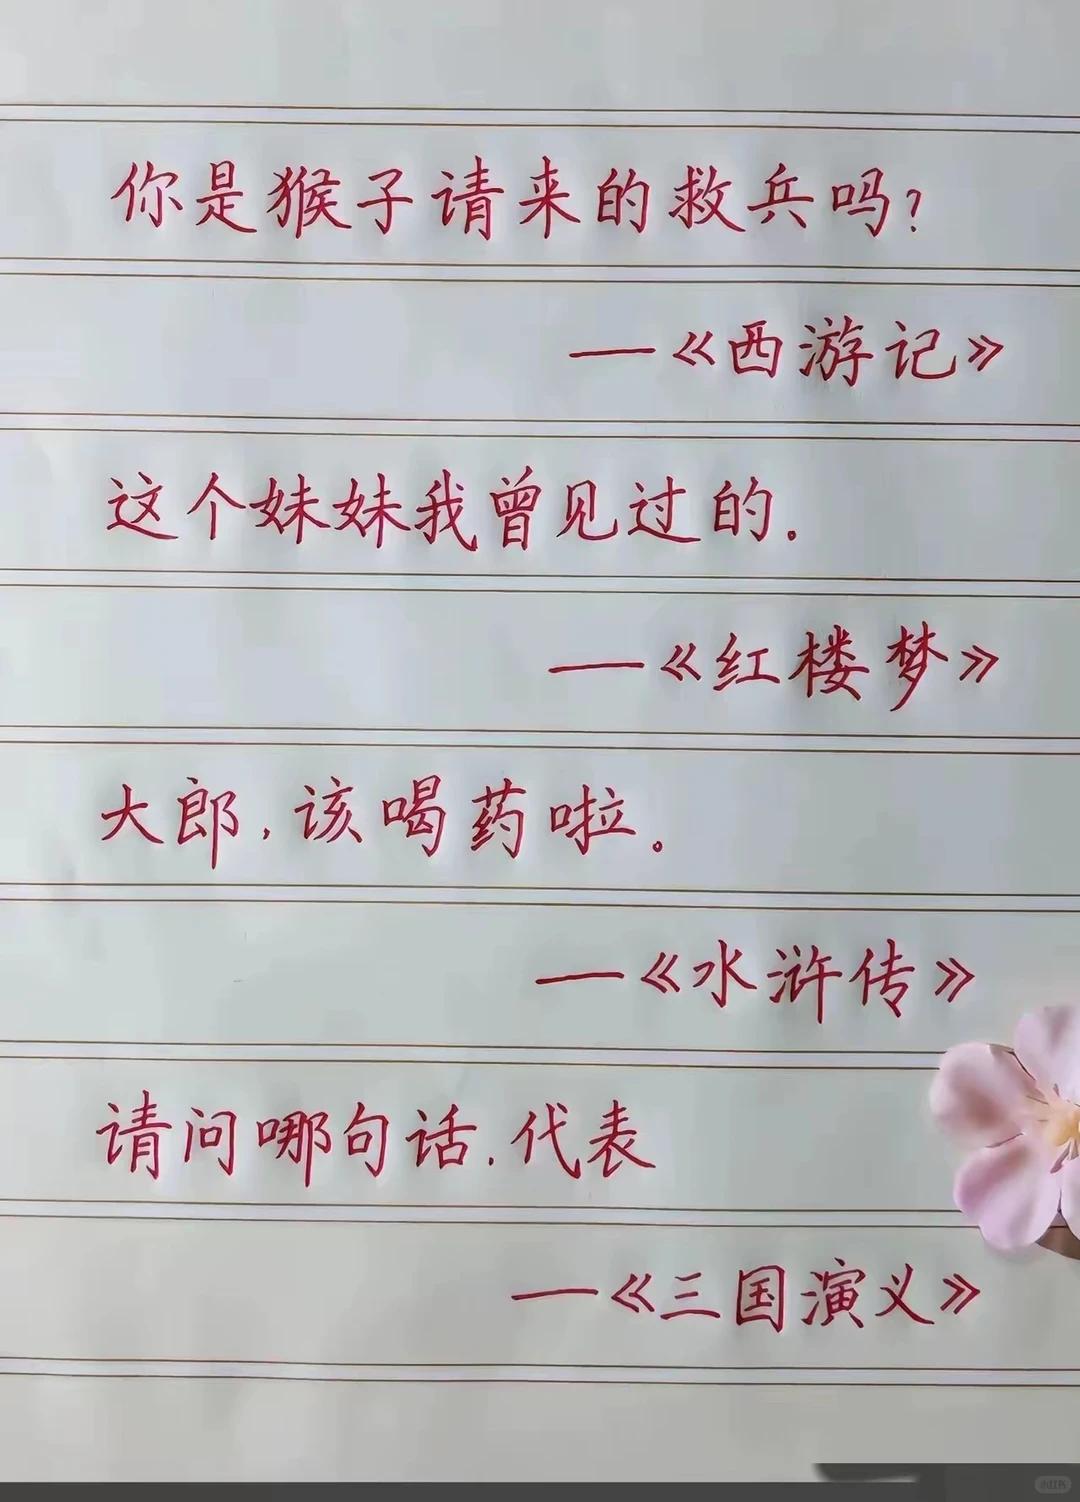 你是猴子请来的救兵吗？
—《西游记》
这个妹妹我曾见过的.
—《红楼梦》
大郎,该喝药啦。
—《水浒传》
请问哪句话.代表
—《三国演义》
小红书